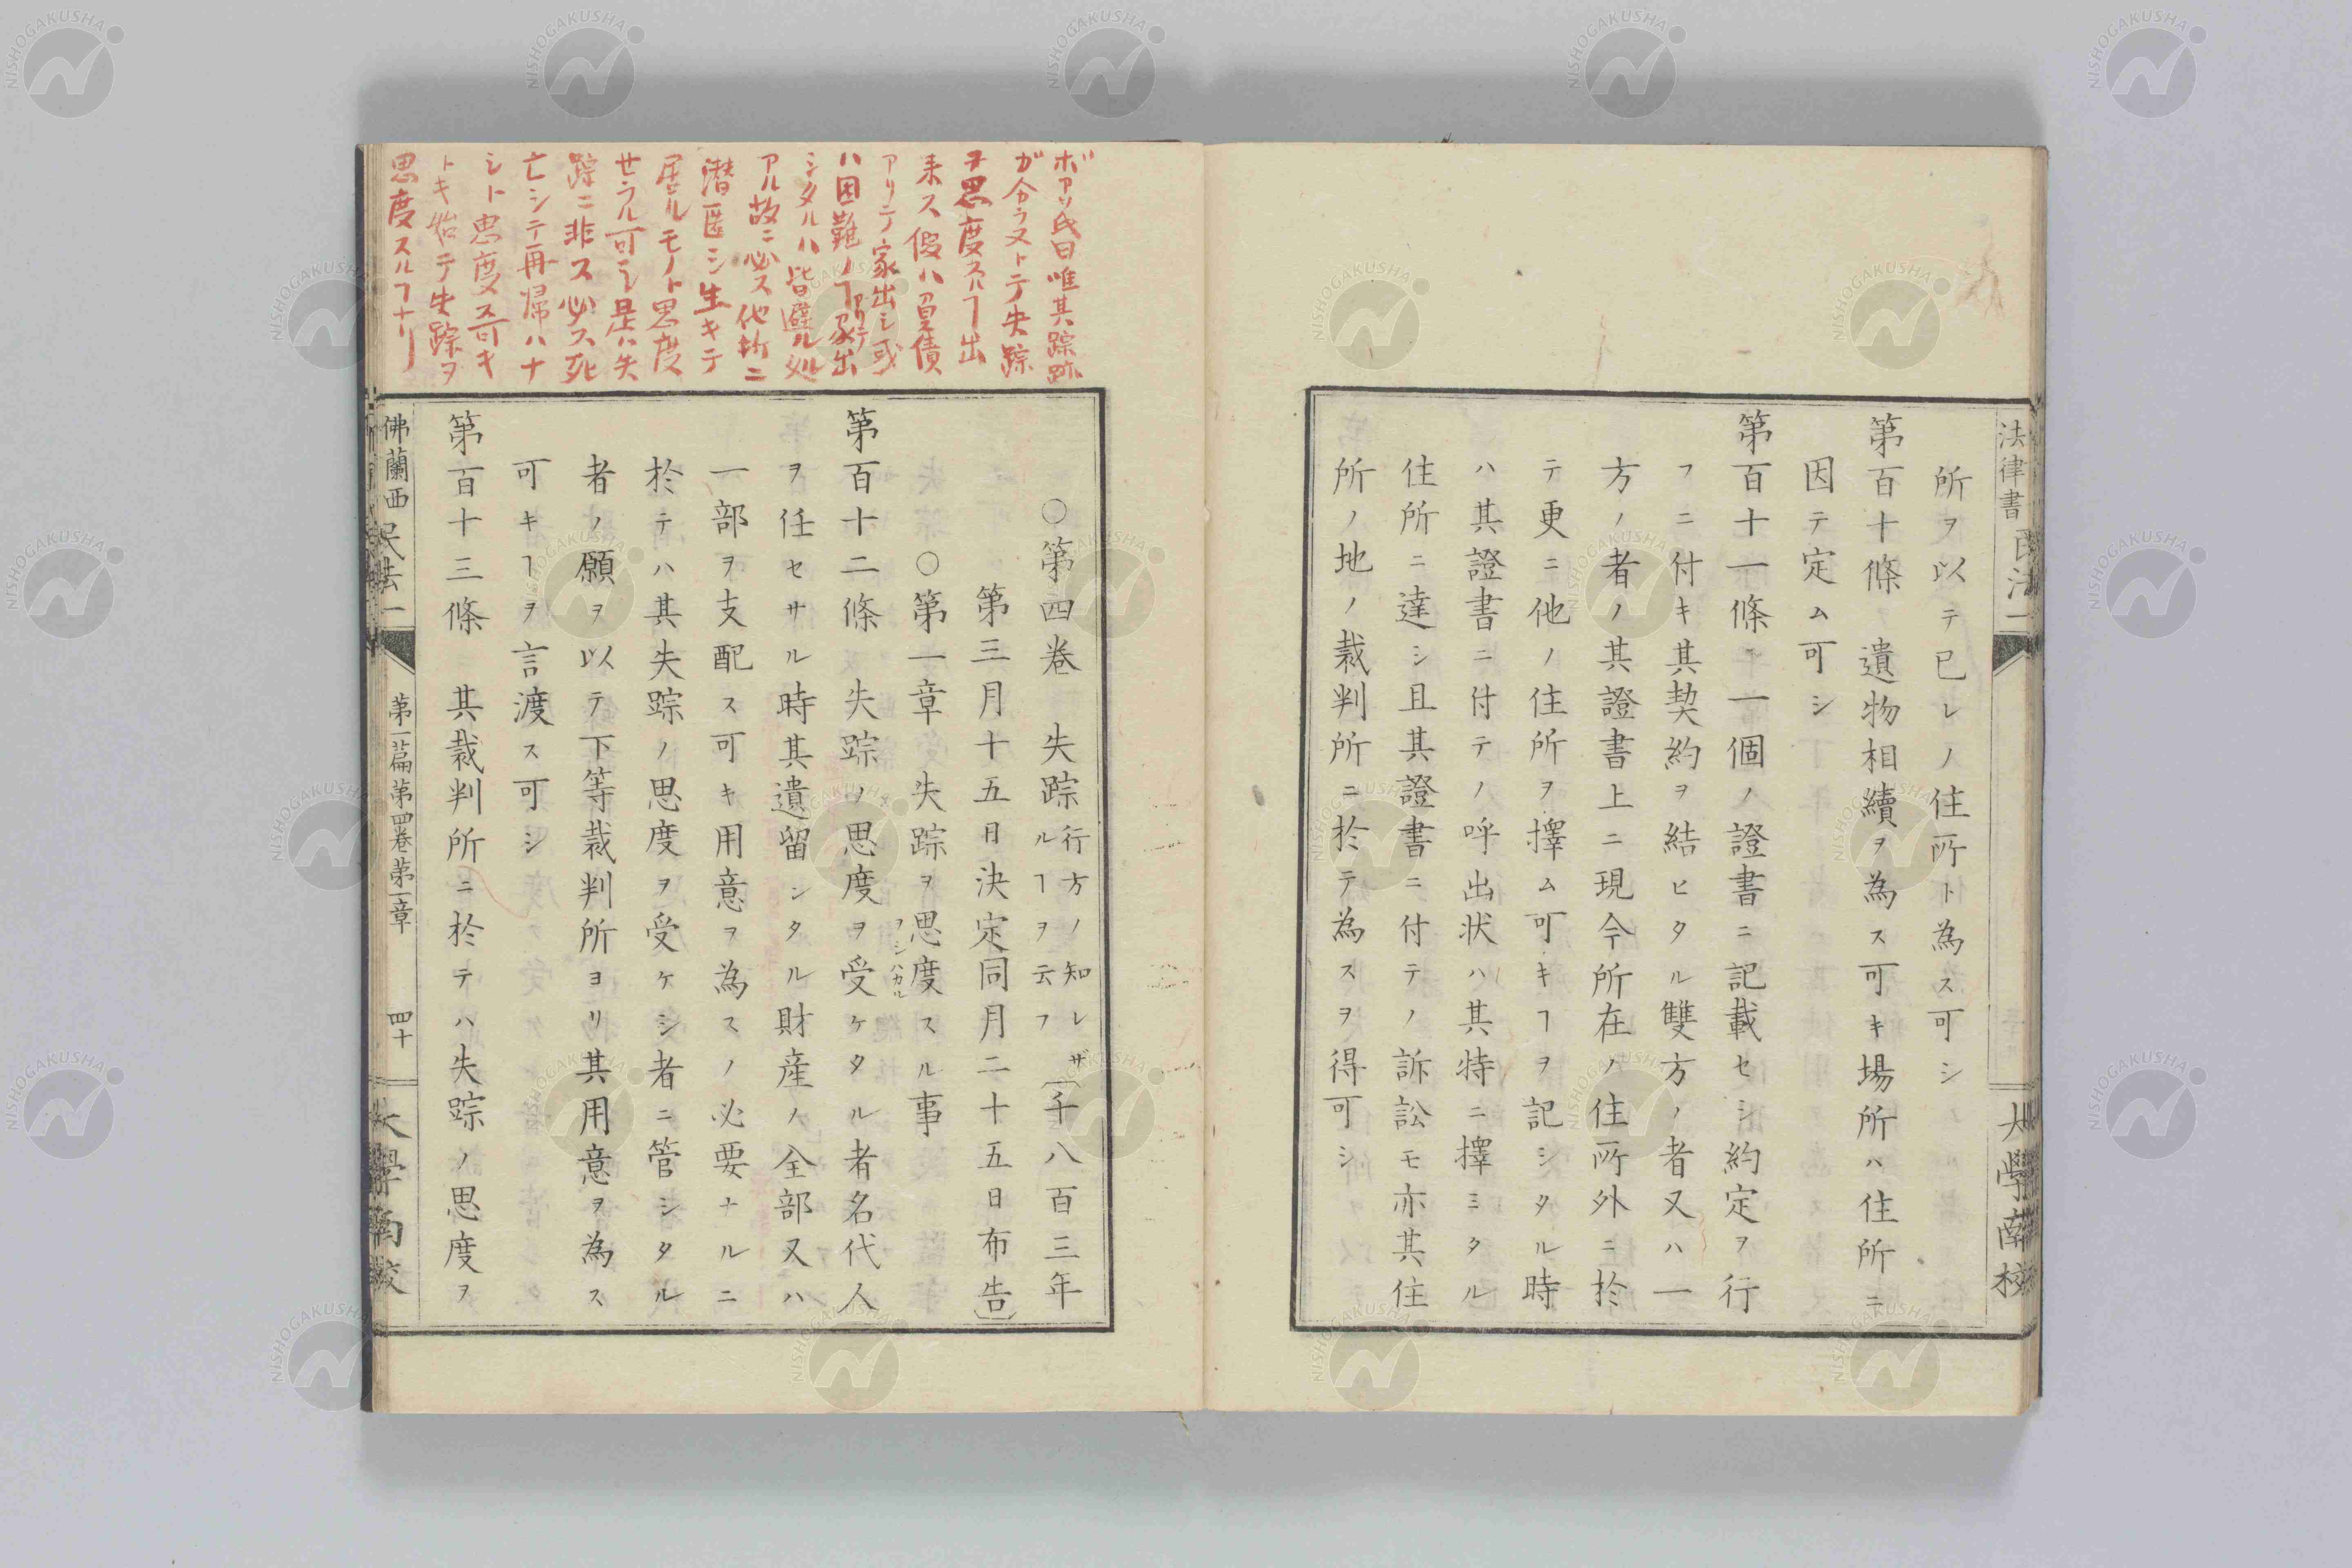 法律書 民法一
大學南校
所ヲ以テ已レノ住所ト為ス可シ
第百十條 遺物相續ヲ為ス可キ場所ハ住所ニ
因テ定ム可シ
第百十一條 一個ノ證書ニ記載セシ約定ヲ行
フニ付キ其契約ヲ結ヒタル雙方ノ者又ハ一
方ノ者ノ其證書上ニ現今所在ノ住所外ニ於
テ更ニ他ノ住所ヲ擇ム可キヿヲ記シタル時
ハ其證書ニ付テノ呼出状ハ其特ニ擇ミタル
住所ニ達シ且其證書ニ付テノ訴訟モ亦其住
所ノ地ノ裁判所ニ於テ為スヲ得可シ
ボアソ氏曰唯其踪跡
ガ分ラヌトテ失踪
ヲ思度スルヿ出
来ス假ハ負債
アリテ家出シ或
ハ困難ノヿアリテ家出
シタルハ皆避ル処
アル故ニ必ス他所ニ
潜匿シ生キテ
居ルモノト思度
せラル可シ是ハ失
踪ニ非ス必ス死
亡シテ再帰ハナ
シト思度ス可キ
トキ始テ失踪ヲ
思度スルヿナリ
○第四巻 失踪 行方ノ知レザ
ルヿヲ云フ 〔千八百三年
第三月十五日決定同月二十五日布告〕
○第一章 失踪ヲ思度スル事
ヲシハカル
第百十二條 失踪ノ思度ヲ受ケタル者名代人
ヲ任セサル時其遺留シタル財産ノ全部又ハ
一部ヲ支配ス可キ用意ヲ為スノ必要ナルニ
於テハ其失踪ノ思度ヲ受ケシ者ニ管シタル
者ノ願ヲ以テ下等裁判所ヨリ其用意ヲ為ス
可キヿヲ言渡ス可シ
第百十三條 其裁判所ニ於テハ失踪ノ思度ヲ
佛蘭西民法一 第一篇第四巻第一章 四十
大學南校